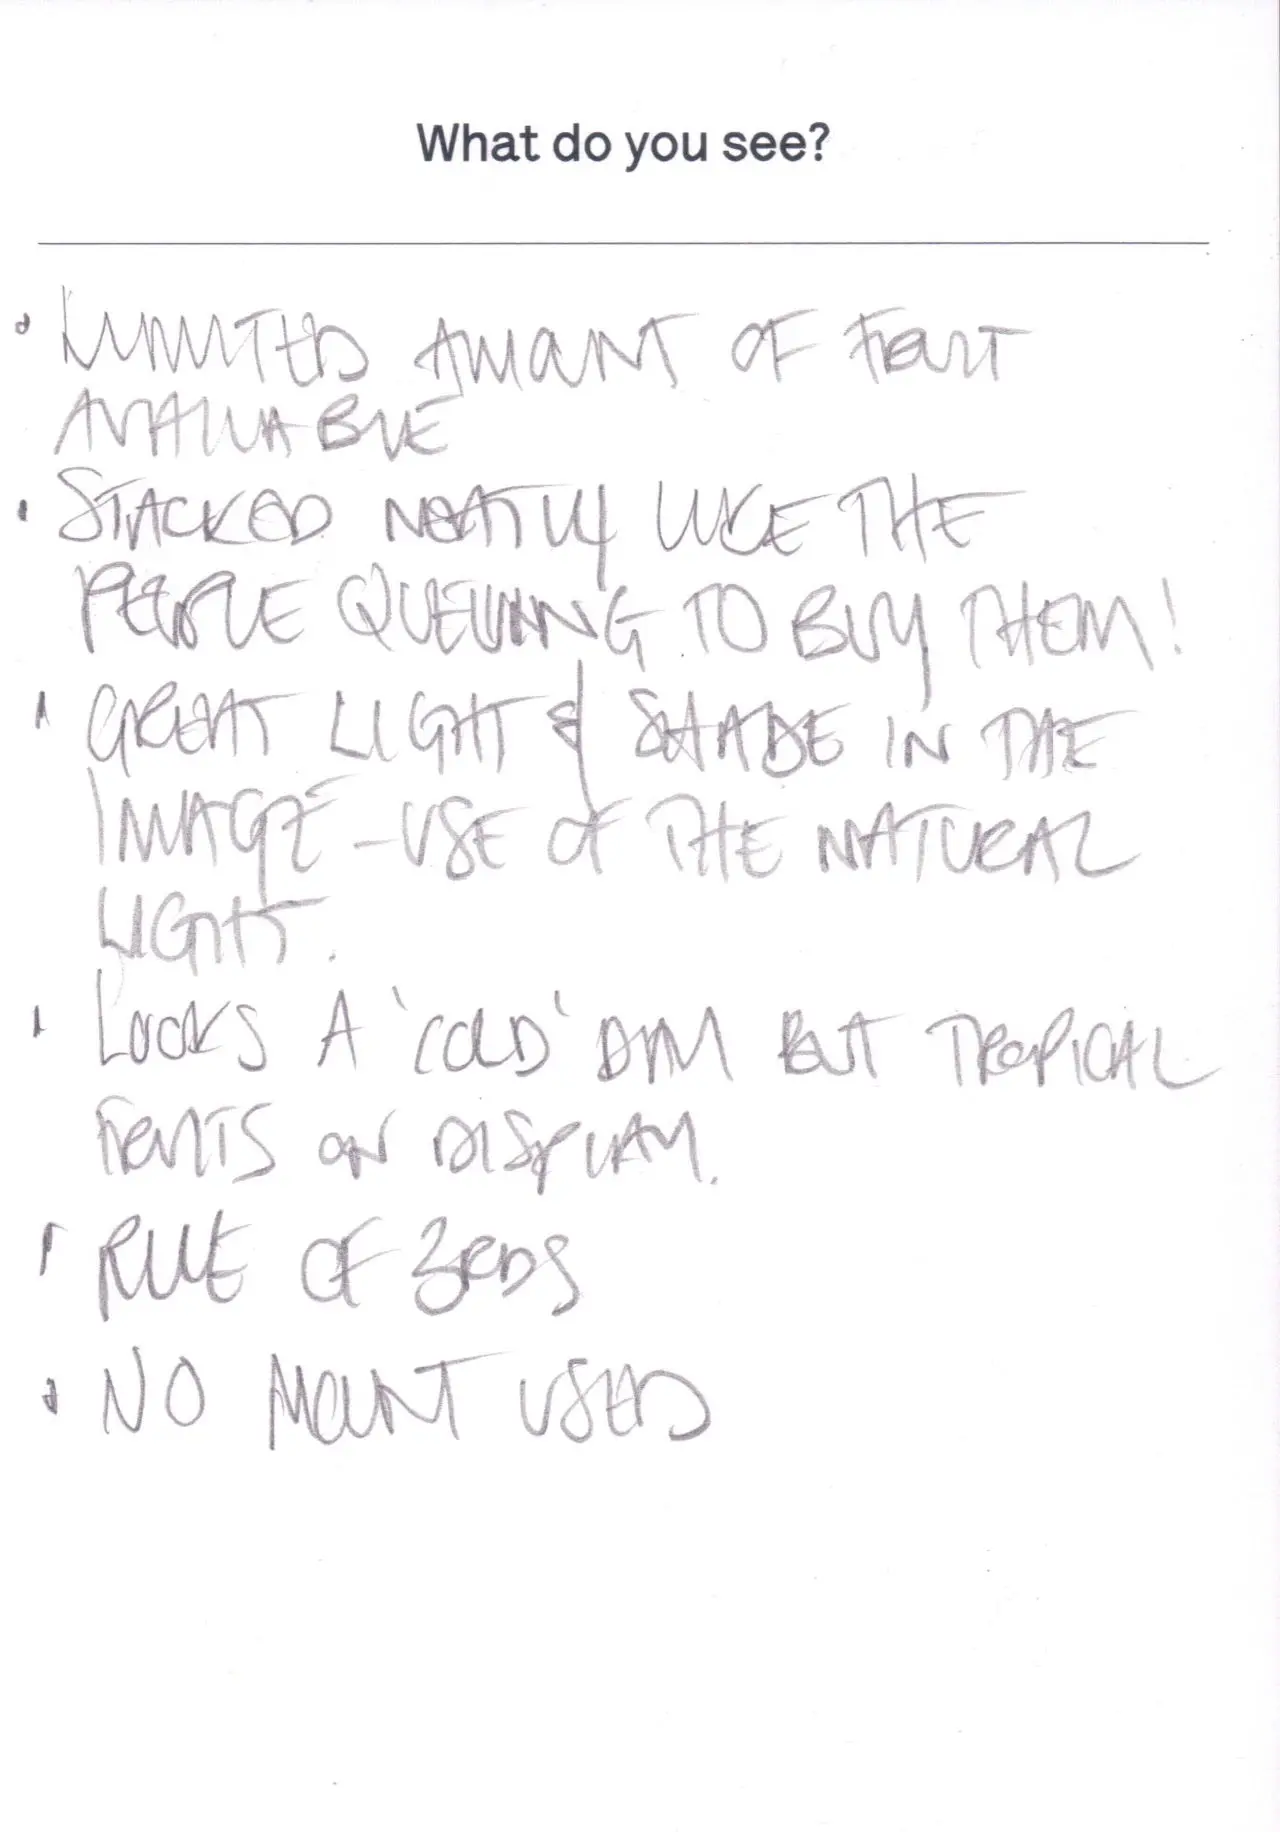 What do you see?
• LIMITED AMOUNT OF FRUIT
AVAILABLE
• STACKED NEATLY LIKE THE
PEOPLE QUEUING TO BUY THEM!
• GREAT LIGHT & SHADE IN THE
IMAGE - USE OF THE NATURAL
LIGHT.
• LOOKS A 'COLD' DAY BUT TROPICAL
FRUITS ON DISPLAY.
• RULE OF 3RDS
• NO MOUNT USED